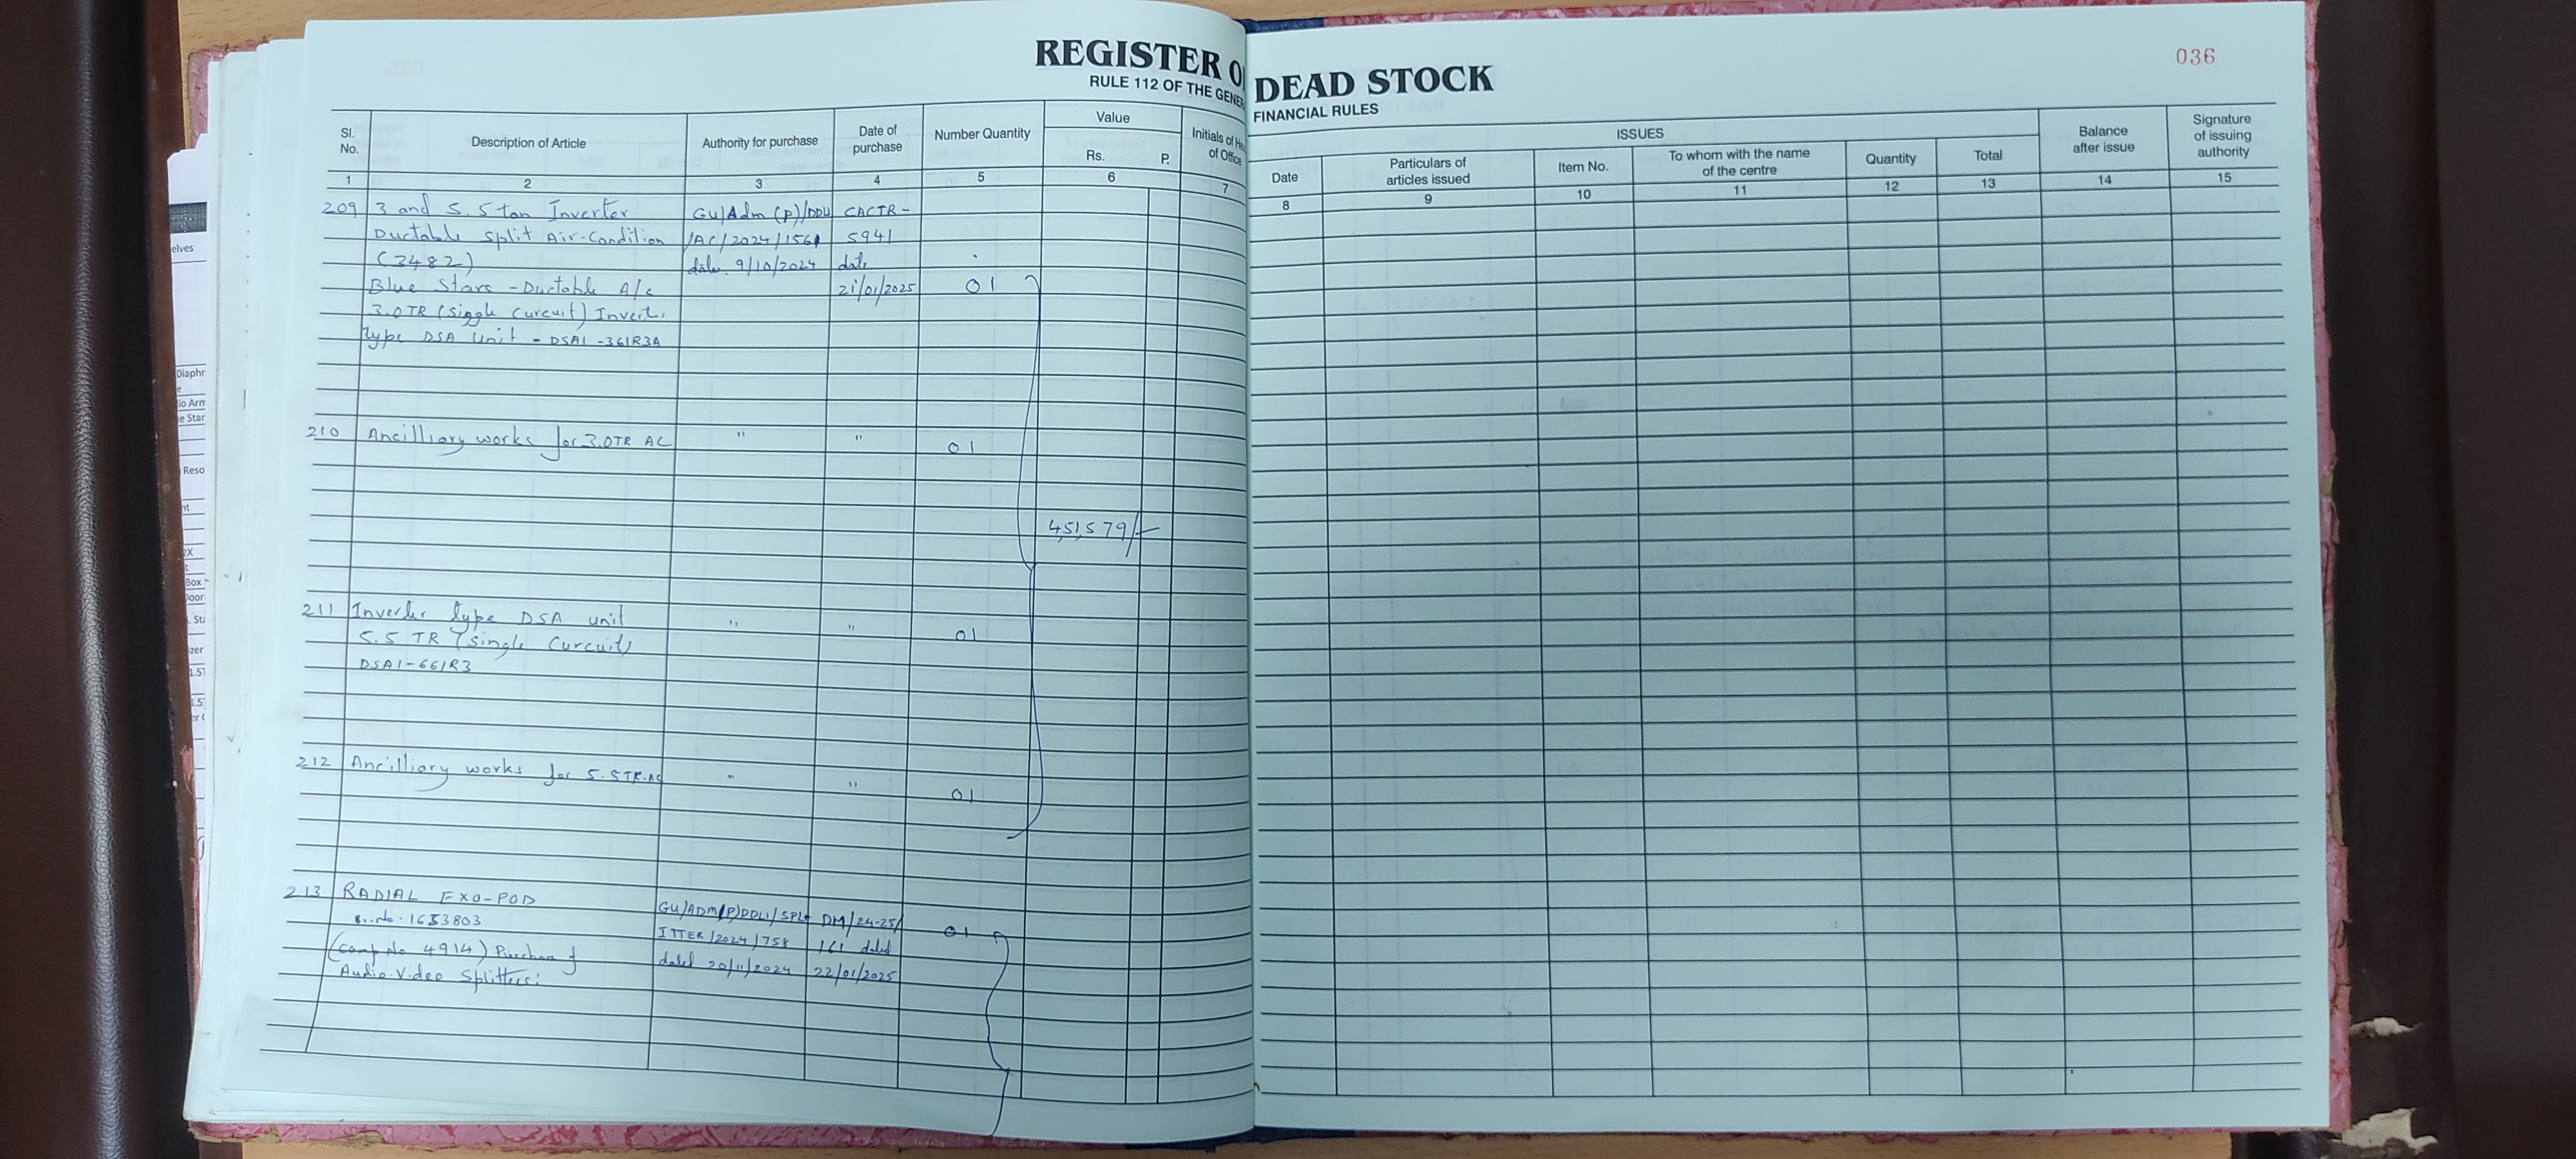 REGISTER O DEAD STOCK
036
RULE 112 OF THE GENER FINANCIAL RULES
Sl. No.
Description of Article
Authority for purchase
Date of purchase
Number Quantity
Value
Rs. P.
Initials of He of Office
ISSUES
Date
Particulars of articles issued
Item No.
To whom with the name of the centre
Quantity
Total
Balance after issue
Signature of issuing authority
1 2 3 4 5 6 7 8 9 10 11 12 13 14 15
209 3 and 5.5 ton Inverter GU/Adm (P)/DDU CACTR-
Ductable Split Air-Condition /AC/2024/1561 5941
(3482) date. 9/10/2024 date
Blue Stars - Ductable A/c 21/01/2025 01
3.0TR (Single Curcuit) Inverter
type DSA Unit - DSA1-361R3A
210 Ancilliary works for 3.0TR AC " " 01
4,51,579/-
211 Inverter type DSA unit " " 01
5.5 TR (Single Curcuit)
DSA1-661R3
212 Ancilliary works for 5.5TR.AC " " 01
213 RADIAL EXO-POD GU/ADM(P)DDU/SPL DM/24-25/ 01
1653803 ITTER/2024/758 161 dated
(Comp No 4914) Purchase of dated 20/11/2024 22/01/2025
Audio-Video Splitters:
elves
Diaphr
e
io Arm
e Star
Reso
nt
EX
t
Box -
Door
. Sta
zer
1.5T
1.5
or (